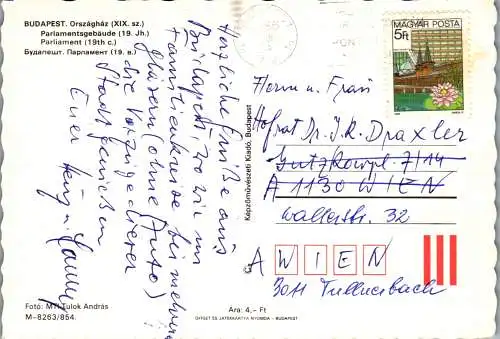 BUDAPEST. Országház (XIX. sz.)
Parlamentsgebäude (19. Jh.)
Parliament (19th c.)
Будапешт. Парламент (19. в.)
Herzliche Grüße aus
Budapest, wo wir im
Familienkreise bei
(ohne Auto)
die Vorzüge dieser
Stadt genießen
Euer
Fotó: MTI Tulok András
M-8263/854.
Képzőművészeti Kiadó, Budapest
Ára: 4,- Ft
OFFSET ÉS JÁTÉKKÁRTYA NYOMDA - BUDAPEST
MAGYAR POSTA
5Ft
Herrn u. Frau
Hofrat Dr. J.R. Draxler
Gutzkowpl. 7/14
A 1130 WIEN
Wallerstr. 32
A WIEN
3011 Tullnerbach